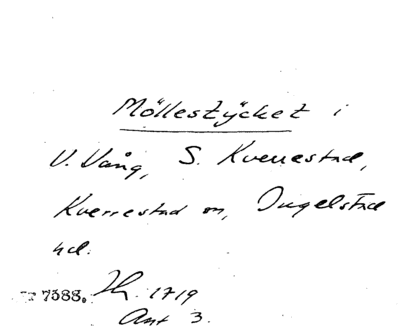 Möllestÿcket i
V. Vång, S. Kverrestad,
Kverrestad sn, Ingelstad
hd.
7388. Lh. 1719
Ant 3.